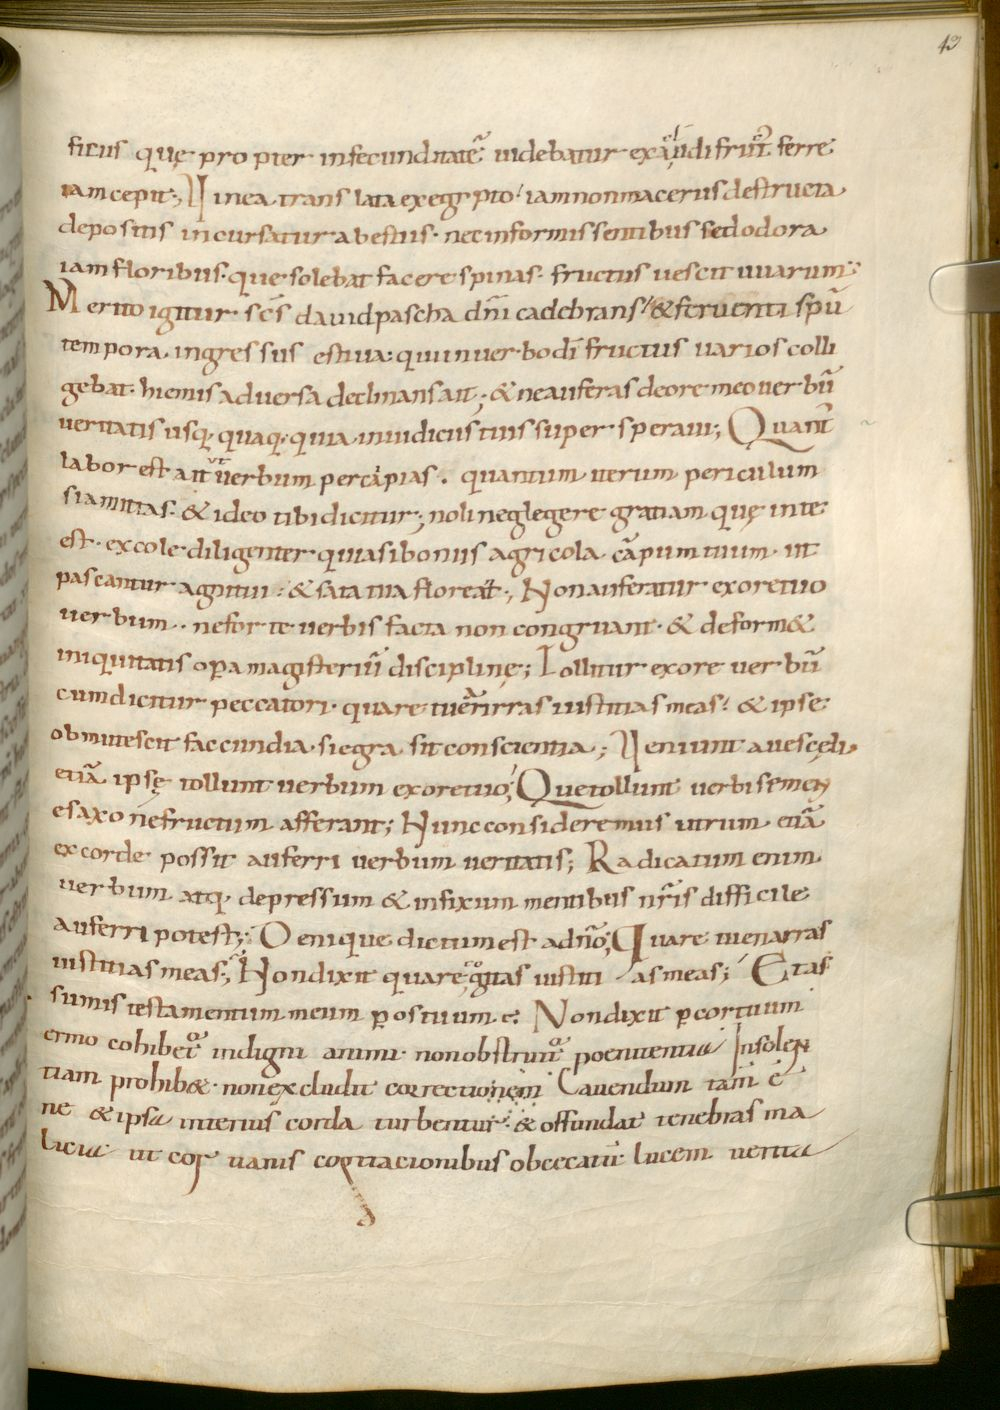 43
ficus quę propter infecunditatē uidebatur exaurdi fruct̄ ferre
iam cepit; Uinea translata ex egypto iam non maceriis destructa
depositis incursatur a bestiis· nec informis sentibus sed odora
iam floribus· que solebat facere spinas· fructus uescit uuarum;
Merito igitur· sc̄s dauid pascha dn̄i caelebrans & feruenti spū
tempora ingressus estiua: qui in uerbo dī fructus uarios colli
gebat· hiemis aduersa declinans ait; & ne auferas de ore meo uerbū
ueritatis usq· quaq· quia in iudiciis tuis super speraui; Quant̄
labor est aıt ut uerbum percipias. quantum uerum periculum
si amittas· & ideo tibi dicitur; noli neglegere gratiam quę in te
est· excole diligenter quasi bonus agricola cāpum tuum· ut
pascantur agni tui: & sata tua floreat; Non auferatur ex ore tuo
uerbum·· ne forte uerbis facta non congruant· & deform&
iniquitatis opa magisteriū disciplinę; Tollitur ex ore uerbū
cum dicitur peccatori· quare tu enarras iustitias meas? & ipse
obmutescit facundia· si egra sit conscientia; Ueniunt aues cęli
etiā ipsę tollunt uerbum ex ore tuo; Que tollunt uerbi semen
e saxo ne fructum afferant; Nunc consideremus utrum etiā
ex corde possit auferri uerbum ueritatis; Radicatum enim
uerbum atq· depressum & infixum mentibus nr̄is difficile
auferri potest; Denique dictum est ad n̄o; Quare tu enarras
iustitias meas; Non dixit quare cogitas iustiti as meas; Et as
sumis testamentum meum p os tuum; Non dixit p cor tuum
ermo cohibet indigni animi· non obstruit poenitentia Insolen
tiam prohib&· non excludit correctionem Cauendum tam̄ ē
ne & ipsa interius corda turbentur & offundat tenebras ma
licia ut cor uanis cogitacionibus obcecatū lucem uerita